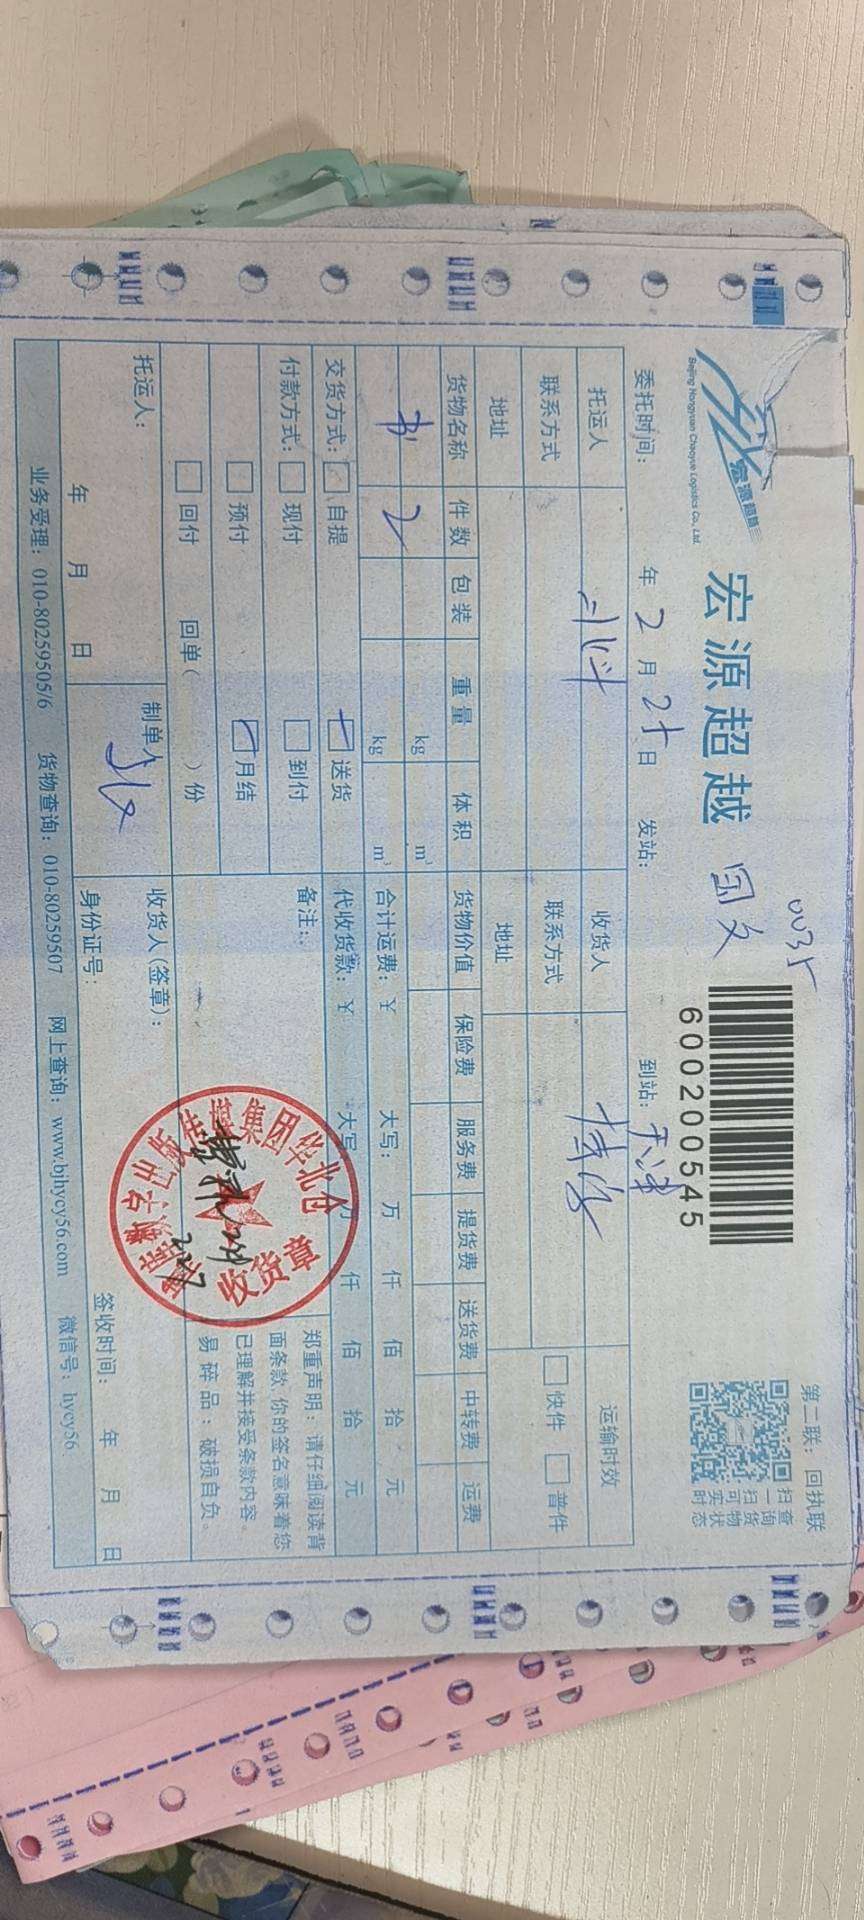 宏源超越
Beijing Hongyuan Chaoyue Logistics Co., Ltd.
宏源超越 国文
0035
600200545
第二联：回执联
扫一扫可实时
查询货物状态
委托时间： 年 2 月 25 日 发站： 到站：天津
托运人 科 收货人 运输时效
联系方式 联系方式 快件 普件
地址 地址
货物名称 件数 包装 重量 体积 货物价值 保险费 服务费 提货费 送货费 中转费 运费
kg m³
书 2 kg m³ 合计运费：¥ 大写： 万 仟 佰 拾 元
交货方式： 自提 送货 代收货款：¥ 大写： 万 仟 佰 拾 元
付款方式： 现付 到付 备注：
预付 月结
回付 回单（ ）份
郑重声明：请仔细阅读背
面条款 你的签名意味着您
已理解并接受条款内容。
易碎品：破损自负。
托运人： 制单人 收货人（签章）：
年 月 日 身份证号： 签收时间： 年 月 日
数字出版传媒集团华北仓
收货章
业务受理：010-80259505/6 货物查询：010-80259507 网上查询：www.bjhycy56.com 微信号：hycy56